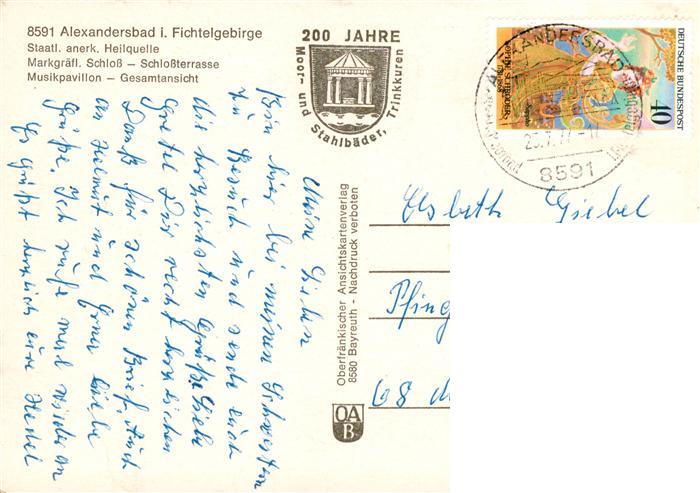 8591 Alexandersbad i. Fichtelgebirge
Staatl. anerk. Heilquelle
Markgräfl. Schloß – Schloßterrasse
Musikpavillon – Gesamtansicht
200 JAHRE
Moor- und Stahlbäder, Trinkkuren
ALEXANDERSBAD
8591
DEUTSCHE BUNDESPOST
40
SOPHIE SCHRÖDER
Sappho
Meine Lieben
Bin hier bei meinen Schwestern
zu Besuch und sende euch
die herzlichsten Grüße. Liebe
Gretel Dir recht herzlichen
Dank für schönen Brief. Auch
an Helmut und Erna liebe
Grüße. Ich rufe mal wieder an
Es grüßt herzlich eure
Oberfränkischer Ansichtskartenverlag
8580 Bayreuth - Nachdruck verboten
OA
B
Elsbeth Giebel
Pfing
68